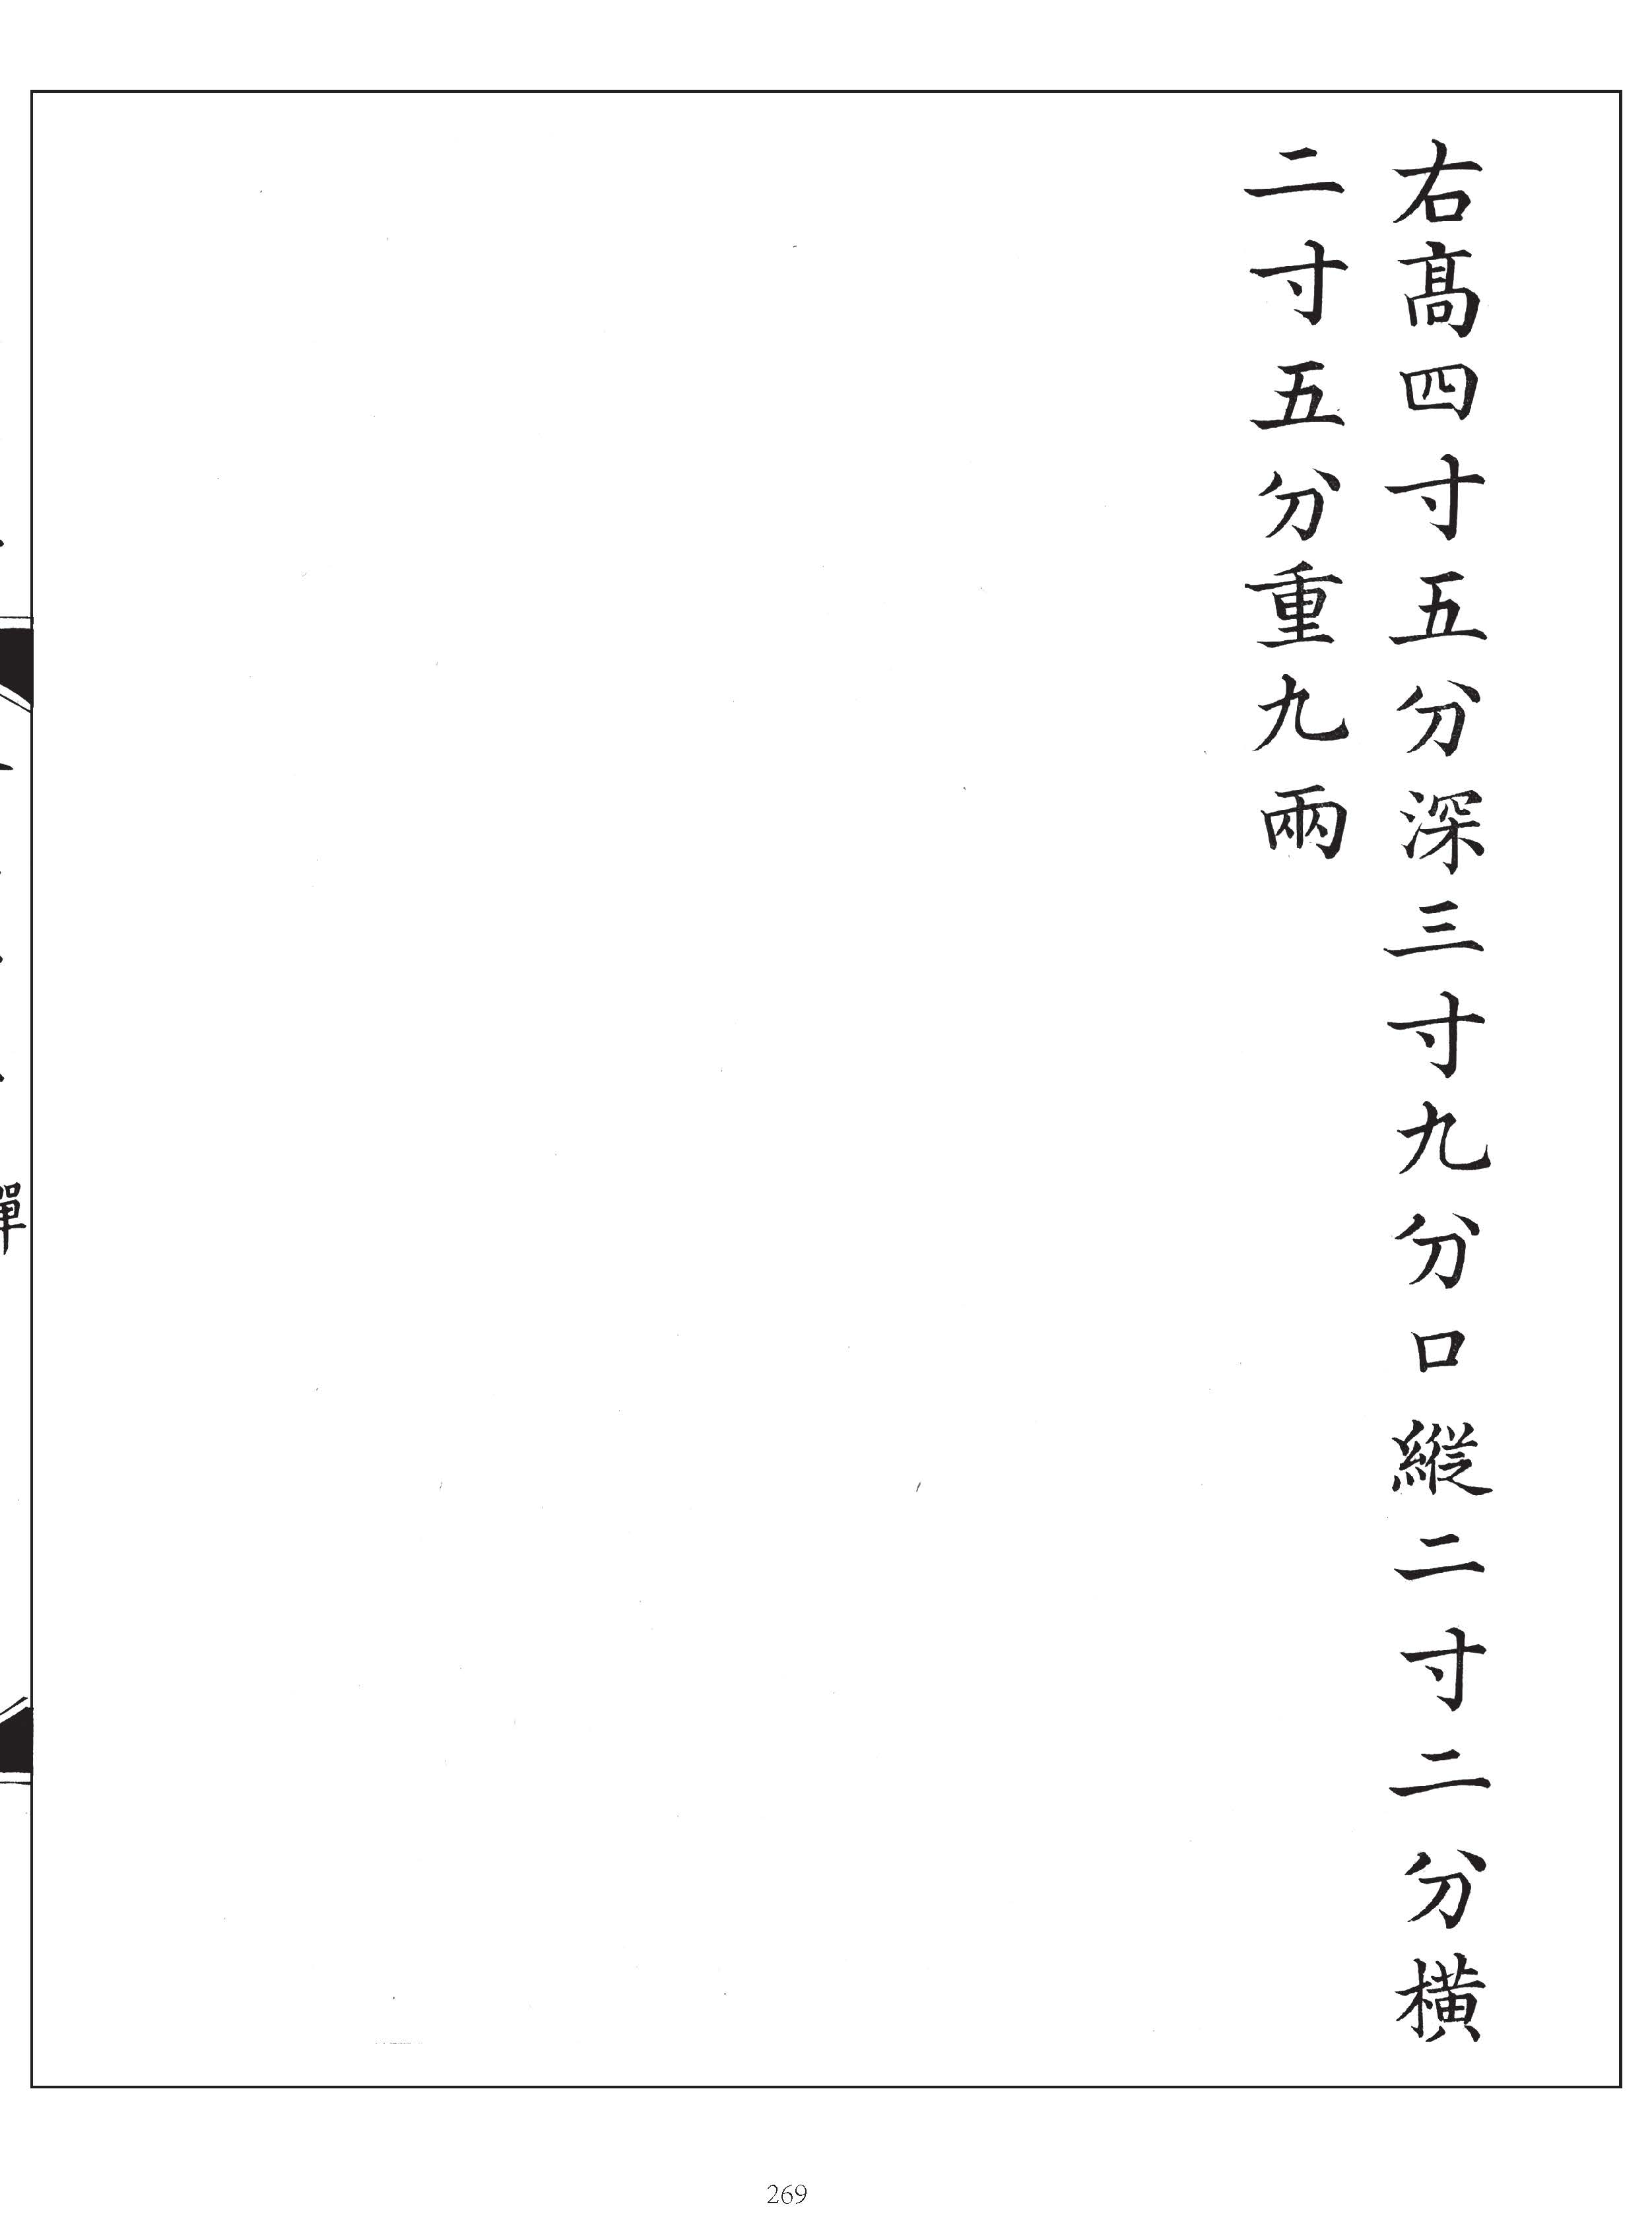 右高四寸五分深三寸九分口縱二寸二分橫
二寸五分重九兩
269